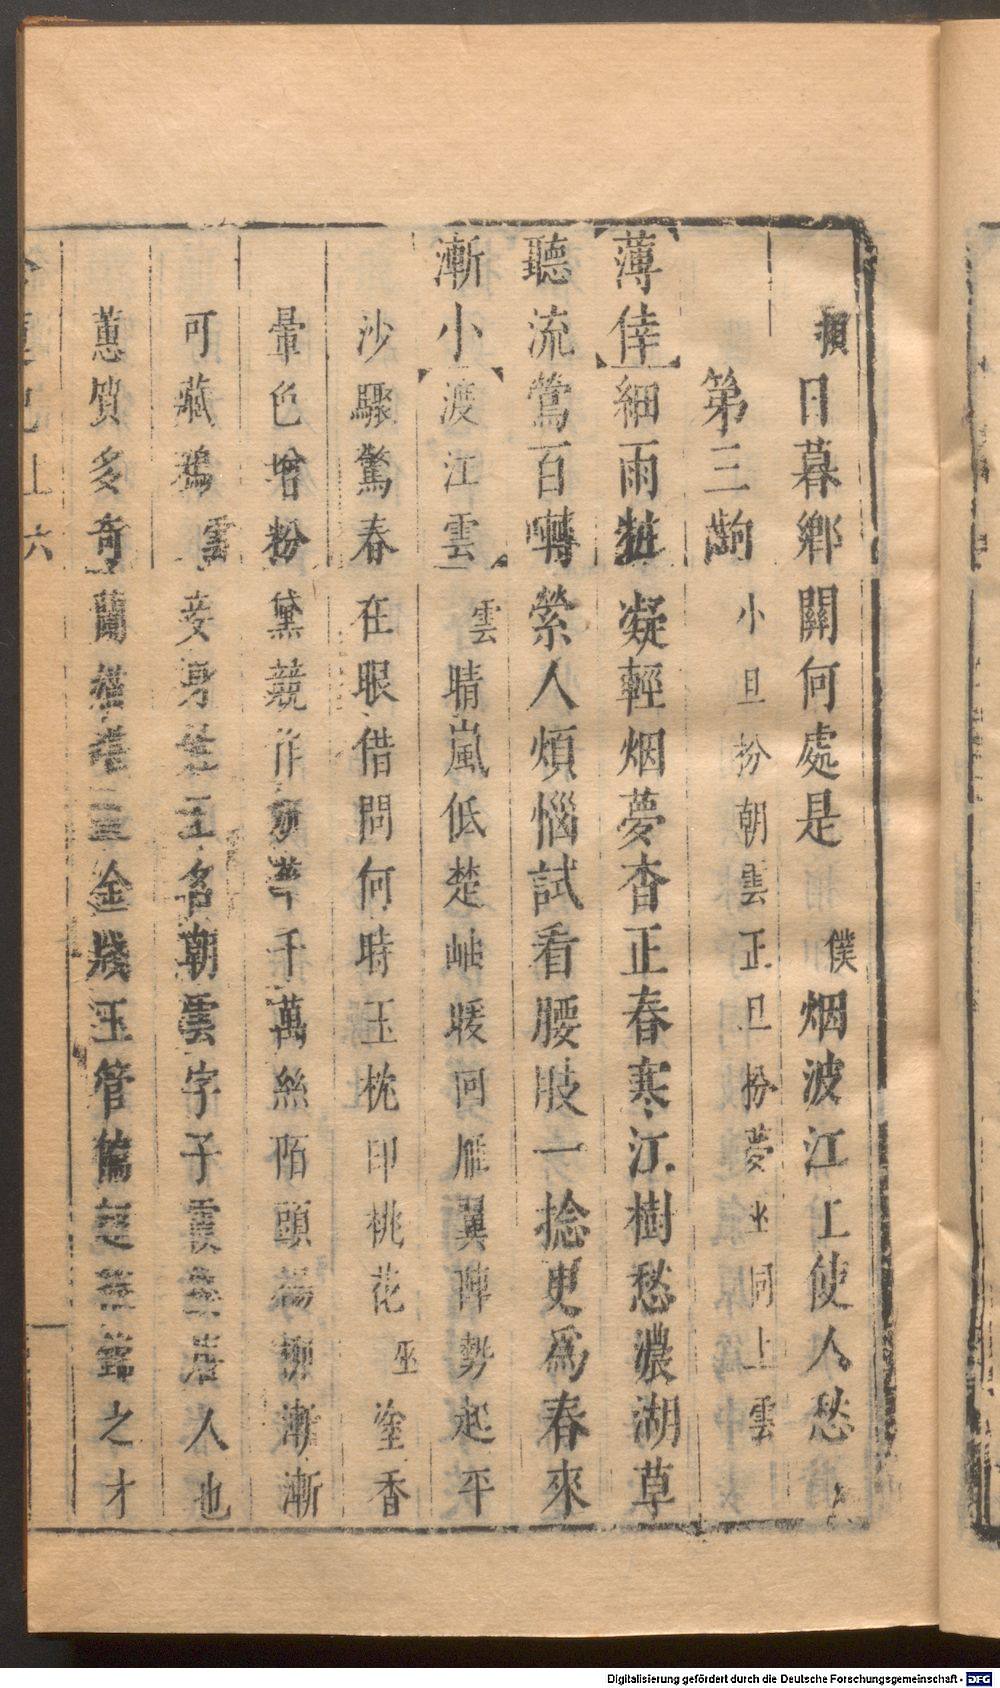 損 日暮鄉關何處是 僕 烟波江上使人愁
第三齣 小旦扮朝雲正旦扮夢坐同上雲
薄倖 細雨粧凝輕烟夢杳正春寒江樹愁濃湖草
聽流鶯百囀縈人煩惱試看腰肢一捻更為春來
漸小 渡江雲 雲 晴嵐低楚岫暖回雁翼陣勢起平
沙驟驚春在眼借問何時玉枕印桃花 巫 塗香
暈色增粉黛競作 千萬絲陌頭楊柳漸漸
可藏鴉 雲 妾身 王名朝雲字子霞 人也
蕙質多奇蘭 金 玉管 之才
上 六
Digitalisierung gefördert durch die Deutsche Forschungsgemeinschaft - DFG